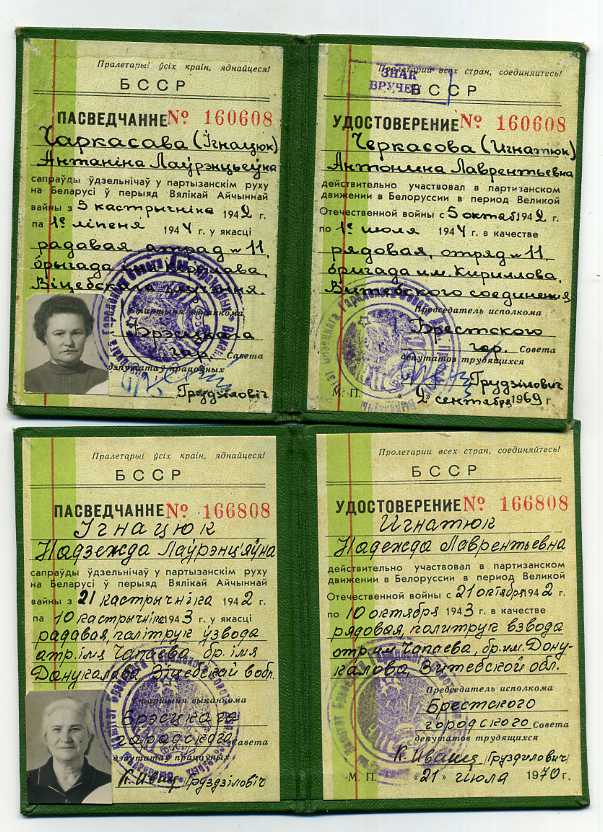 Пралетары! ўсіх краін, яднайцеся!
БССР
ПАСВЕДЧАННЕ № 160608
Чаркасава (Ігнацюк)
Антаніна Лаўрэнцьеўна
сапраўды ўдзельнічаў у партызанскім руху
на Беларусі ў перыяд Вялікай Айчыннай
вайны з 5 кастрычніка 1942 г.
па 1е ліпеня 1944 г. у якасці
радавая, атрад н 11,
брыгада
Віцебскага
Старшыня выканкома
Брэсцкага
гар. Савета
дэпутатаў працоўных
Груздзіловіч
Пролетарии всех стран, соединяйтесь!
ЗНАК
ВРУЧЕН
БССР
УДОСТОВЕРЕНИЕ № 160608
Черкасова (Игнатюк)
Антонина Лаврентьевна
действительно участвовал в партизанском
движении в Белоруссии в период Великой
Отечественной войны с 5 октяб 1942 г.
по 1е июля 1944 г. в качестве
рядовая, отряд н 11,
бригада им. Кириллова,
Витебского соединения
Председатель исполкома
Брестского
гор. Совета
депутатов трудящихся
Груздилович
М. П. 2 сентября 1969 г.
Пралетары! ўсіх краін, яднайцеся!
БССР
ПАСВЕДЧАННЕ № 166808
Ігнацюк
Надзежда Лаўрэнц'яўна
сапраўды ўдзельнічаў у партызанскім руху
на Беларусі ў перыяд Вялікай Айчыннай
вайны з 21 кастрычніка 1942 г.
па 10 кастрычніка 1943 г. у якасці
радавая, палітрук ўзвода
атр. імя Чапаева, бр. імя
Данукалава Віцебскай вобл.
Старшыня выканкома
Брэсцкага
гарадскога Савета
дэпутатаў працоўных
Груздзіловіч
Пролетарии всех стран, соединяйтесь!
БССР
УДОСТОВЕРЕНИЕ № 166808
Игнатюк
Надежда Лаврентьевна
действительно участвовал в партизанском
движении в Белоруссии в период Великой
Отечественной войны с 21 октября 1942 г.
по 10 октября 1943 г. в качестве
рядовая, политрук взвода
отр. им. Чапаева, бр. им. Дону-
калова, Витебской обл.
Председатель исполкома
Брестского
городского Совета
депутатов трудящихся
(Груздилович)
М. П. "21" июля 1970 г.